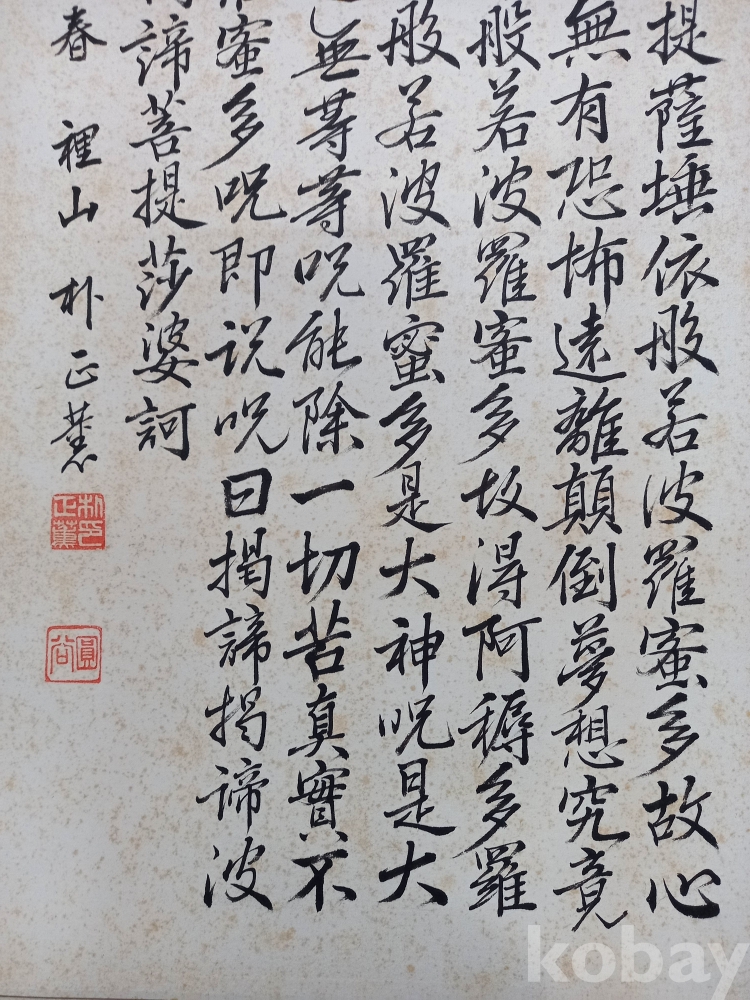 提薩埵依般若波羅蜜多故心
無有恐怖遠離顛倒夢想究竟
般若波羅蜜多故得阿耨多羅
般若波羅蜜多是大神呪是大
無等等呪能除一切苦真實不
蜜多呪即説呪曰揭諦揭諦波
諦菩提莎婆訶
春 裡山 朴正薰
朴印正薰
圓谷
kobay